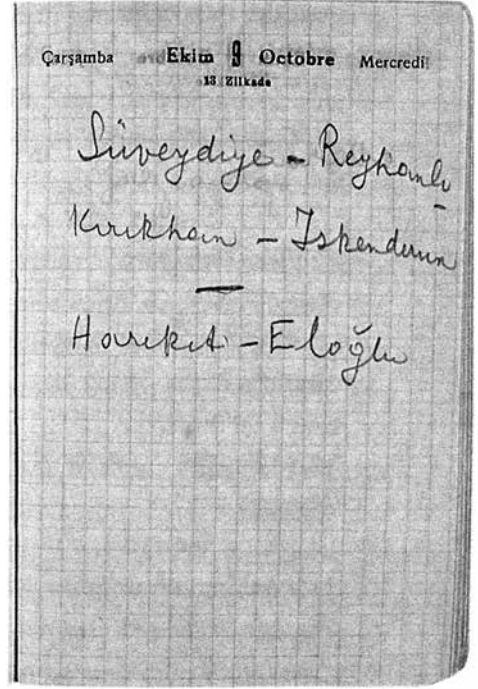 Çarşamba Ekim 9 Octobre Mercredi
13 Zilkade
Süveydiye - Reyhanlı
-
Kırıkhan - Iskenderun
—
Hareket - Eloğlu